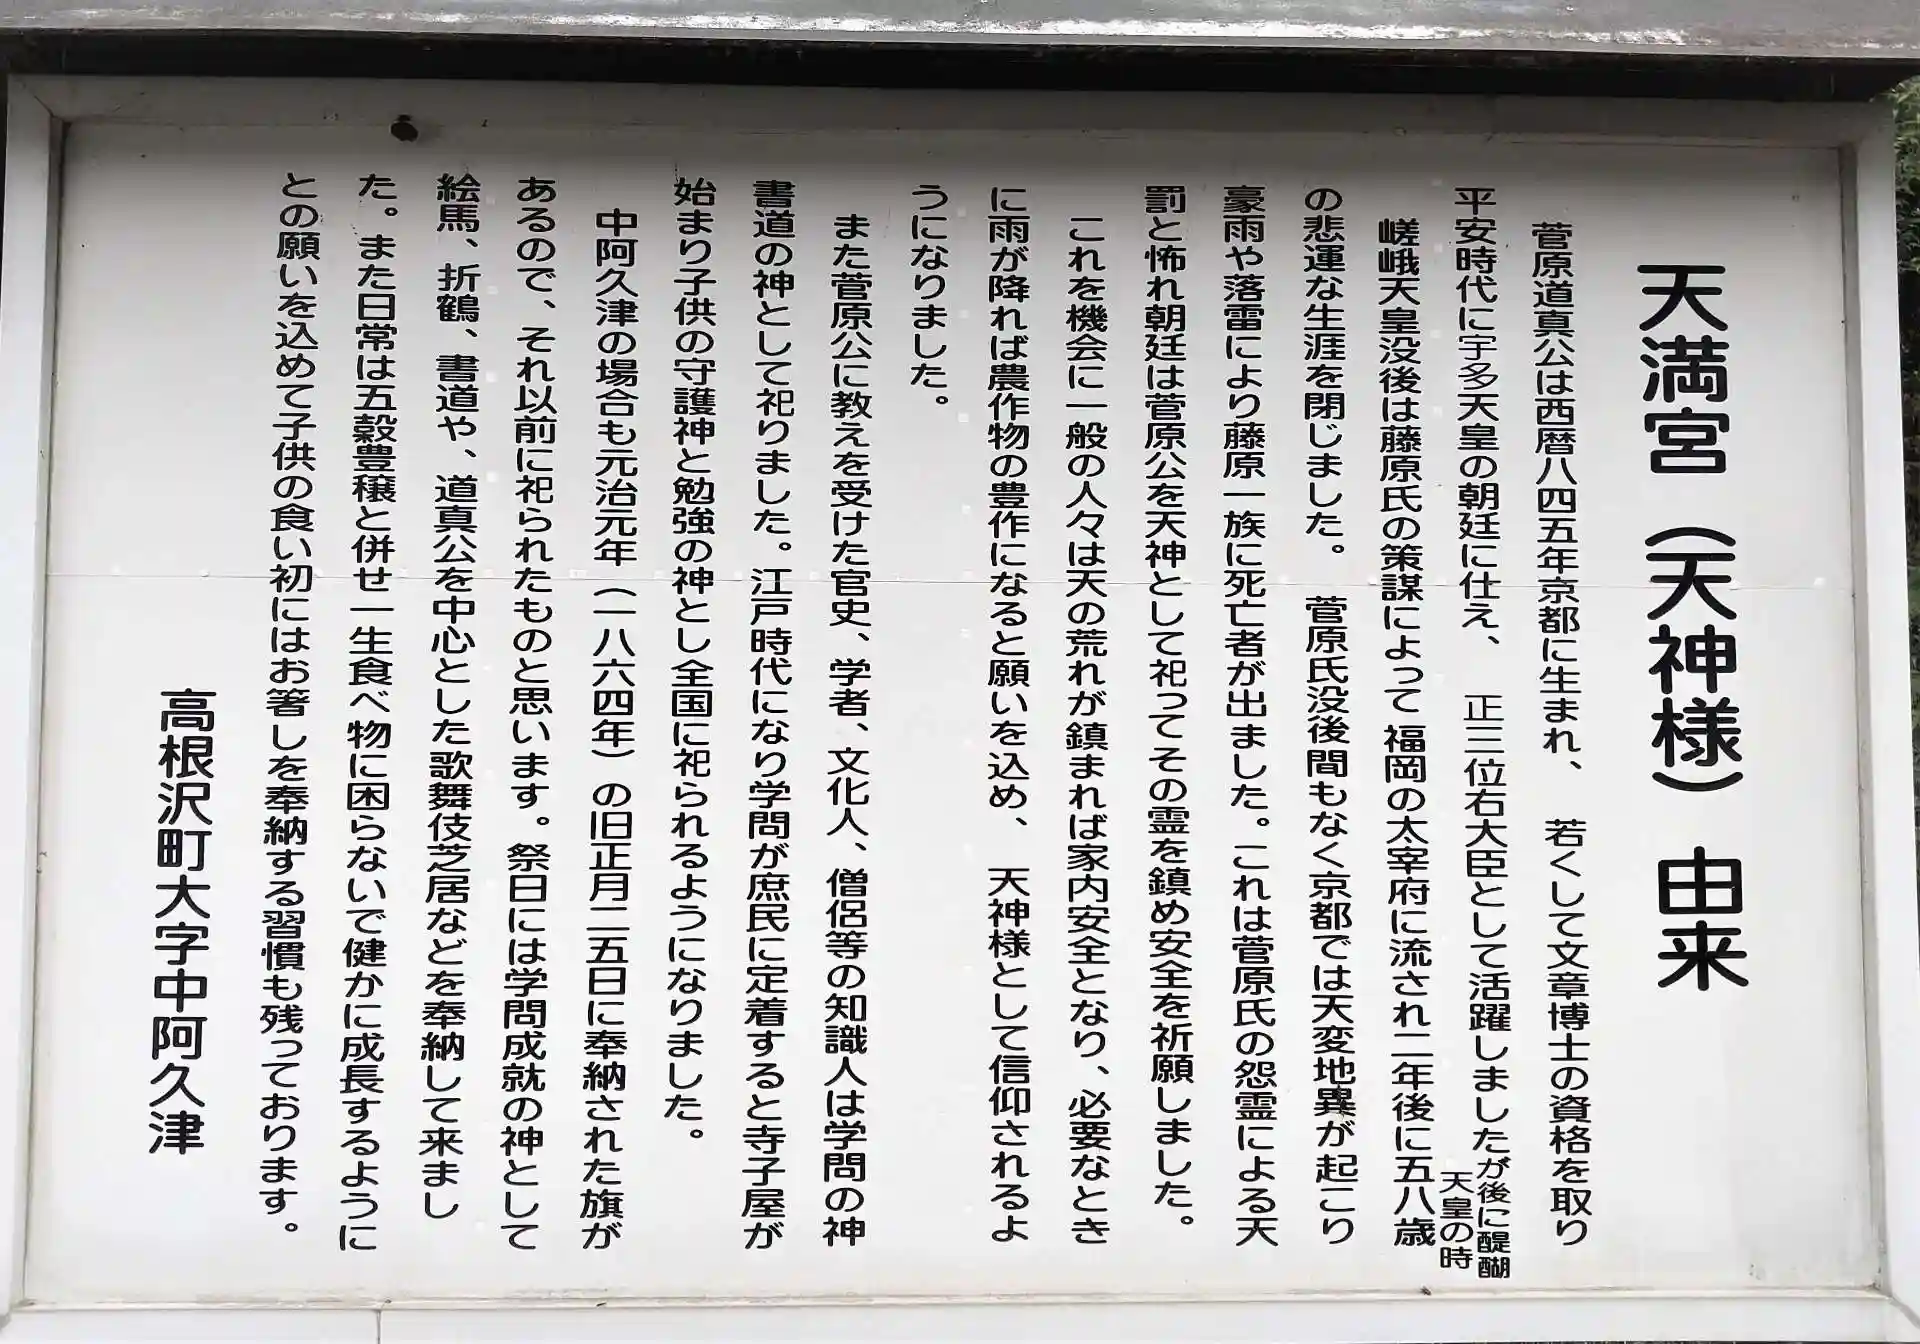 天満宮（天神様）由来
菅原道真公は西暦八四五年京都に生まれ、若くして文章博士の資格を取り
平安時代に宇多天皇の朝廷に仕え、正二位右大臣として活躍しましたが後に醍醐
天皇の時
嵯峨天皇没後は藤原氏の策謀によって福岡の太宰府に流され二年後に五八歳
の悲運な生涯を閉じました。菅原氏没後間もなく京都では天変地異が起こり
豪雨や落雷により藤原一族に死亡者が出ました。これは菅原氏の怨霊による天
罰と怖れ朝廷は菅原公を天神として祀ってその霊を鎮め安全を祈願しました。
これを機会に一般の人々は天の荒れが鎮まれば家内安全となり、必要なとき
に雨が降れば農作物の豊作になると願いを込め、天神様として信仰されるよ
うになりました。
また菅原公に教えを受けた官史、学者、文化人、僧侶等の知識人は学問の神
書道の神として祀りました。江戸時代になり学問が庶民に定着すると寺子屋が
始まり子供の守護神と勉強の神とし全国に祀られるようになりました。
中阿久津の場合も元治元年（一八六四年）の旧正月二五日に奉納された旗が
あるので、それ以前に祀られたものと思います。祭日には学問成就の神として
絵馬、折鶴、書道や、道真公を中心とした歌舞伎芝居などを奉納して来まし
た。また日常は五穀豊穣と併せ一生食べ物に困らないで健かに成長するように
との願いを込めて子供の食い初にはお箸しを奉納する習慣も残っております。
高根沢町大字中阿久津